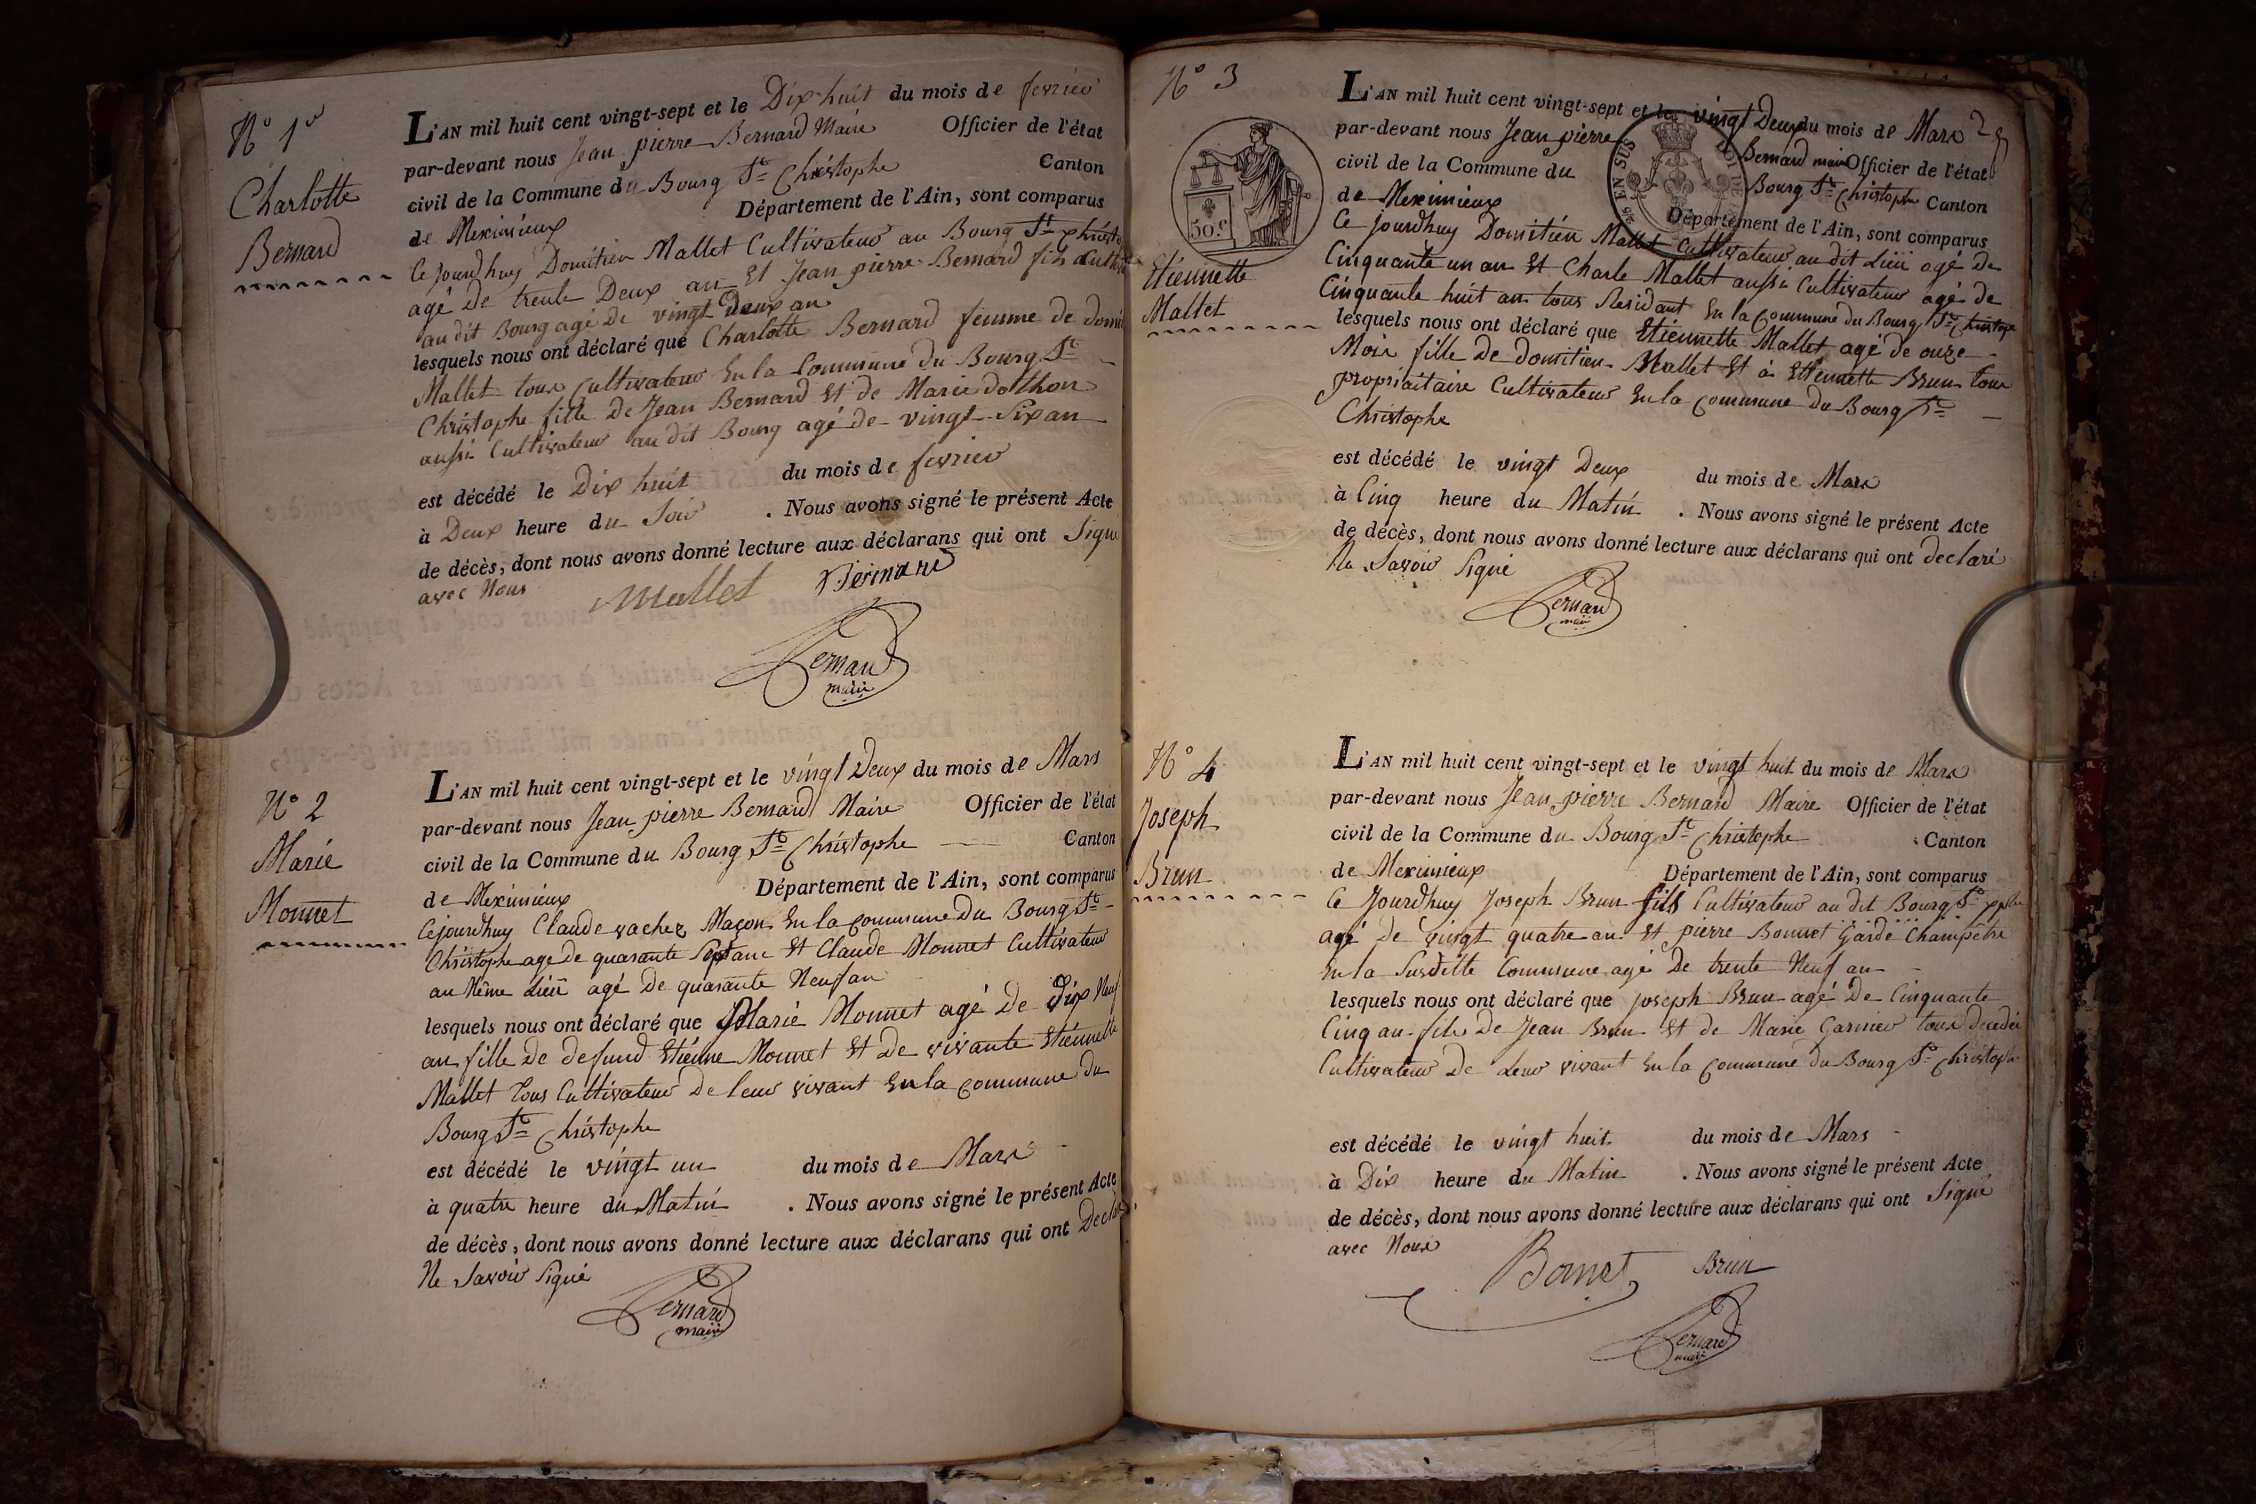 N° 1er
Charlotte
Bernard
L'AN mil huit cent vingt-sept et le Dix huit du mois de fevrier
par-devant nous Jean pierre Bernard Maire Officier de l'état
civil de la Commune du Bourg St Christophe Canton
de Meximieux Département de l'Ain, sont comparus
Ce jourdhuy Domitien Mallet Cultivateur au Bourg St
agé de trente Deux an Et Jean pierre Bernard fils
au dit Bourg agé de vingt Deux an
lesquels nous ont déclaré que Charlotte Bernard femme de
Mallet tous Cultivateur En la Commune du Bourg St
Christophe fille de Jean Bernard Et de Marie dothon
aussi Cultivateur au dit Bourg agé de vingt Six an
est décédé le Dix huit du mois de fevrier
à Deux heure du Soir . Nous avons signé le présent Acte
de décès, dont nous avons donné lecture aux déclarans qui ont Signé
avec Nous
Mallet Bernard
Bernard
maire
N° 2
Marie
Monnet
L'AN mil huit cent vingt-sept et le vingt Deux du mois de Mars
par-devant nous Jean pierre Bernard Maire Officier de l'état
civil de la Commune du Bourg St Christophe Canton
de Meximieux Département de l'Ain, sont comparus
Cejourdhuy Claude vachez Maçon En la commune du Bourg St
Christophe agé de quarante Sept ans Et Claude Monnet Cultivateur
au Même Lieu agé De quarante Neuf an
lesquels nous ont déclaré que Marie Monnet agé de Dix Neuf
an fille de defund Etienne Monnet Et De vivante Etiennette
Mallet Tous Cultivateur De leur vivant En la commune du
Bourg St Christophe
est décédé le vingt un du mois de Mars
à quatre heure du Matin . Nous avons signé le présent Acte
de décès, dont nous avons donné lecture aux déclarans qui ont
Ne Savoir Signé
Bernard
maire
N° 3
50.c
Etiennette
Mallet
EN SUS
L'AN mil huit cent vingt-sept et le vingt Deux du mois de Mars 2
par-devant nous Jean pierre Bernard maire Officier de l'état
civil de la Commune du Bourg St Christophe Canton
de Meximieux Département de l'Ain, sont comparus
Ce jourdhuy Domitien Mallet Cultivateur au dit Lieu agé de
Cinquante un an Et Charle Mallet aussi Cultivateur agé de
Cinquante huit an tous Residant En la Commune du Bourg St Christophe
lesquels nous ont déclaré que Etiennette Mallet agé de onze
Mois fille de domitien Mallet Et a Etiennette Brun tous
propriaitaire Cultivateur En la Commune du Bourg St
Christophe
est décédé le vingt Deux du mois de Mars
à Cinq heure du Matin . Nous avons signé le présent Acte
de décès, dont nous avons donné lecture aux déclarans qui ont declaré
Ne Savoir Signé
Bernard
maire
N° 4
Joseph
Brun
L'AN mil huit cent vingt-sept et le vingt huit du mois de Mars
par-devant nous Jean pierre Bernard Maire Officier de l'état
civil de la Commune du Bourg St Christophe Canton
de Meximieux Département de l'Ain, sont comparus
Ce Jourdhuy Joseph Brun fils Cultivateur au dit Bourg St
agé De vingt quatre an Et pierre Bonnet Garde Champêtre
En la Susditte Commune agé De trente Neuf an
lesquels nous ont déclaré que joseph Brun agé De Cinquante
Cinq an fils De Jean Brun Et de Marie Garnier tous decedé
Cultivateur De Leur vivant En la Commune du Bourg St Christophe
est décédé le vingt huit du mois de Mars
à Dix heure du Matin . Nous avons signé le présent Acte
de décès, dont nous avons donné lecture aux déclarans qui ont Signé
avec Nous
Bonnet Brun
Bernard
maire